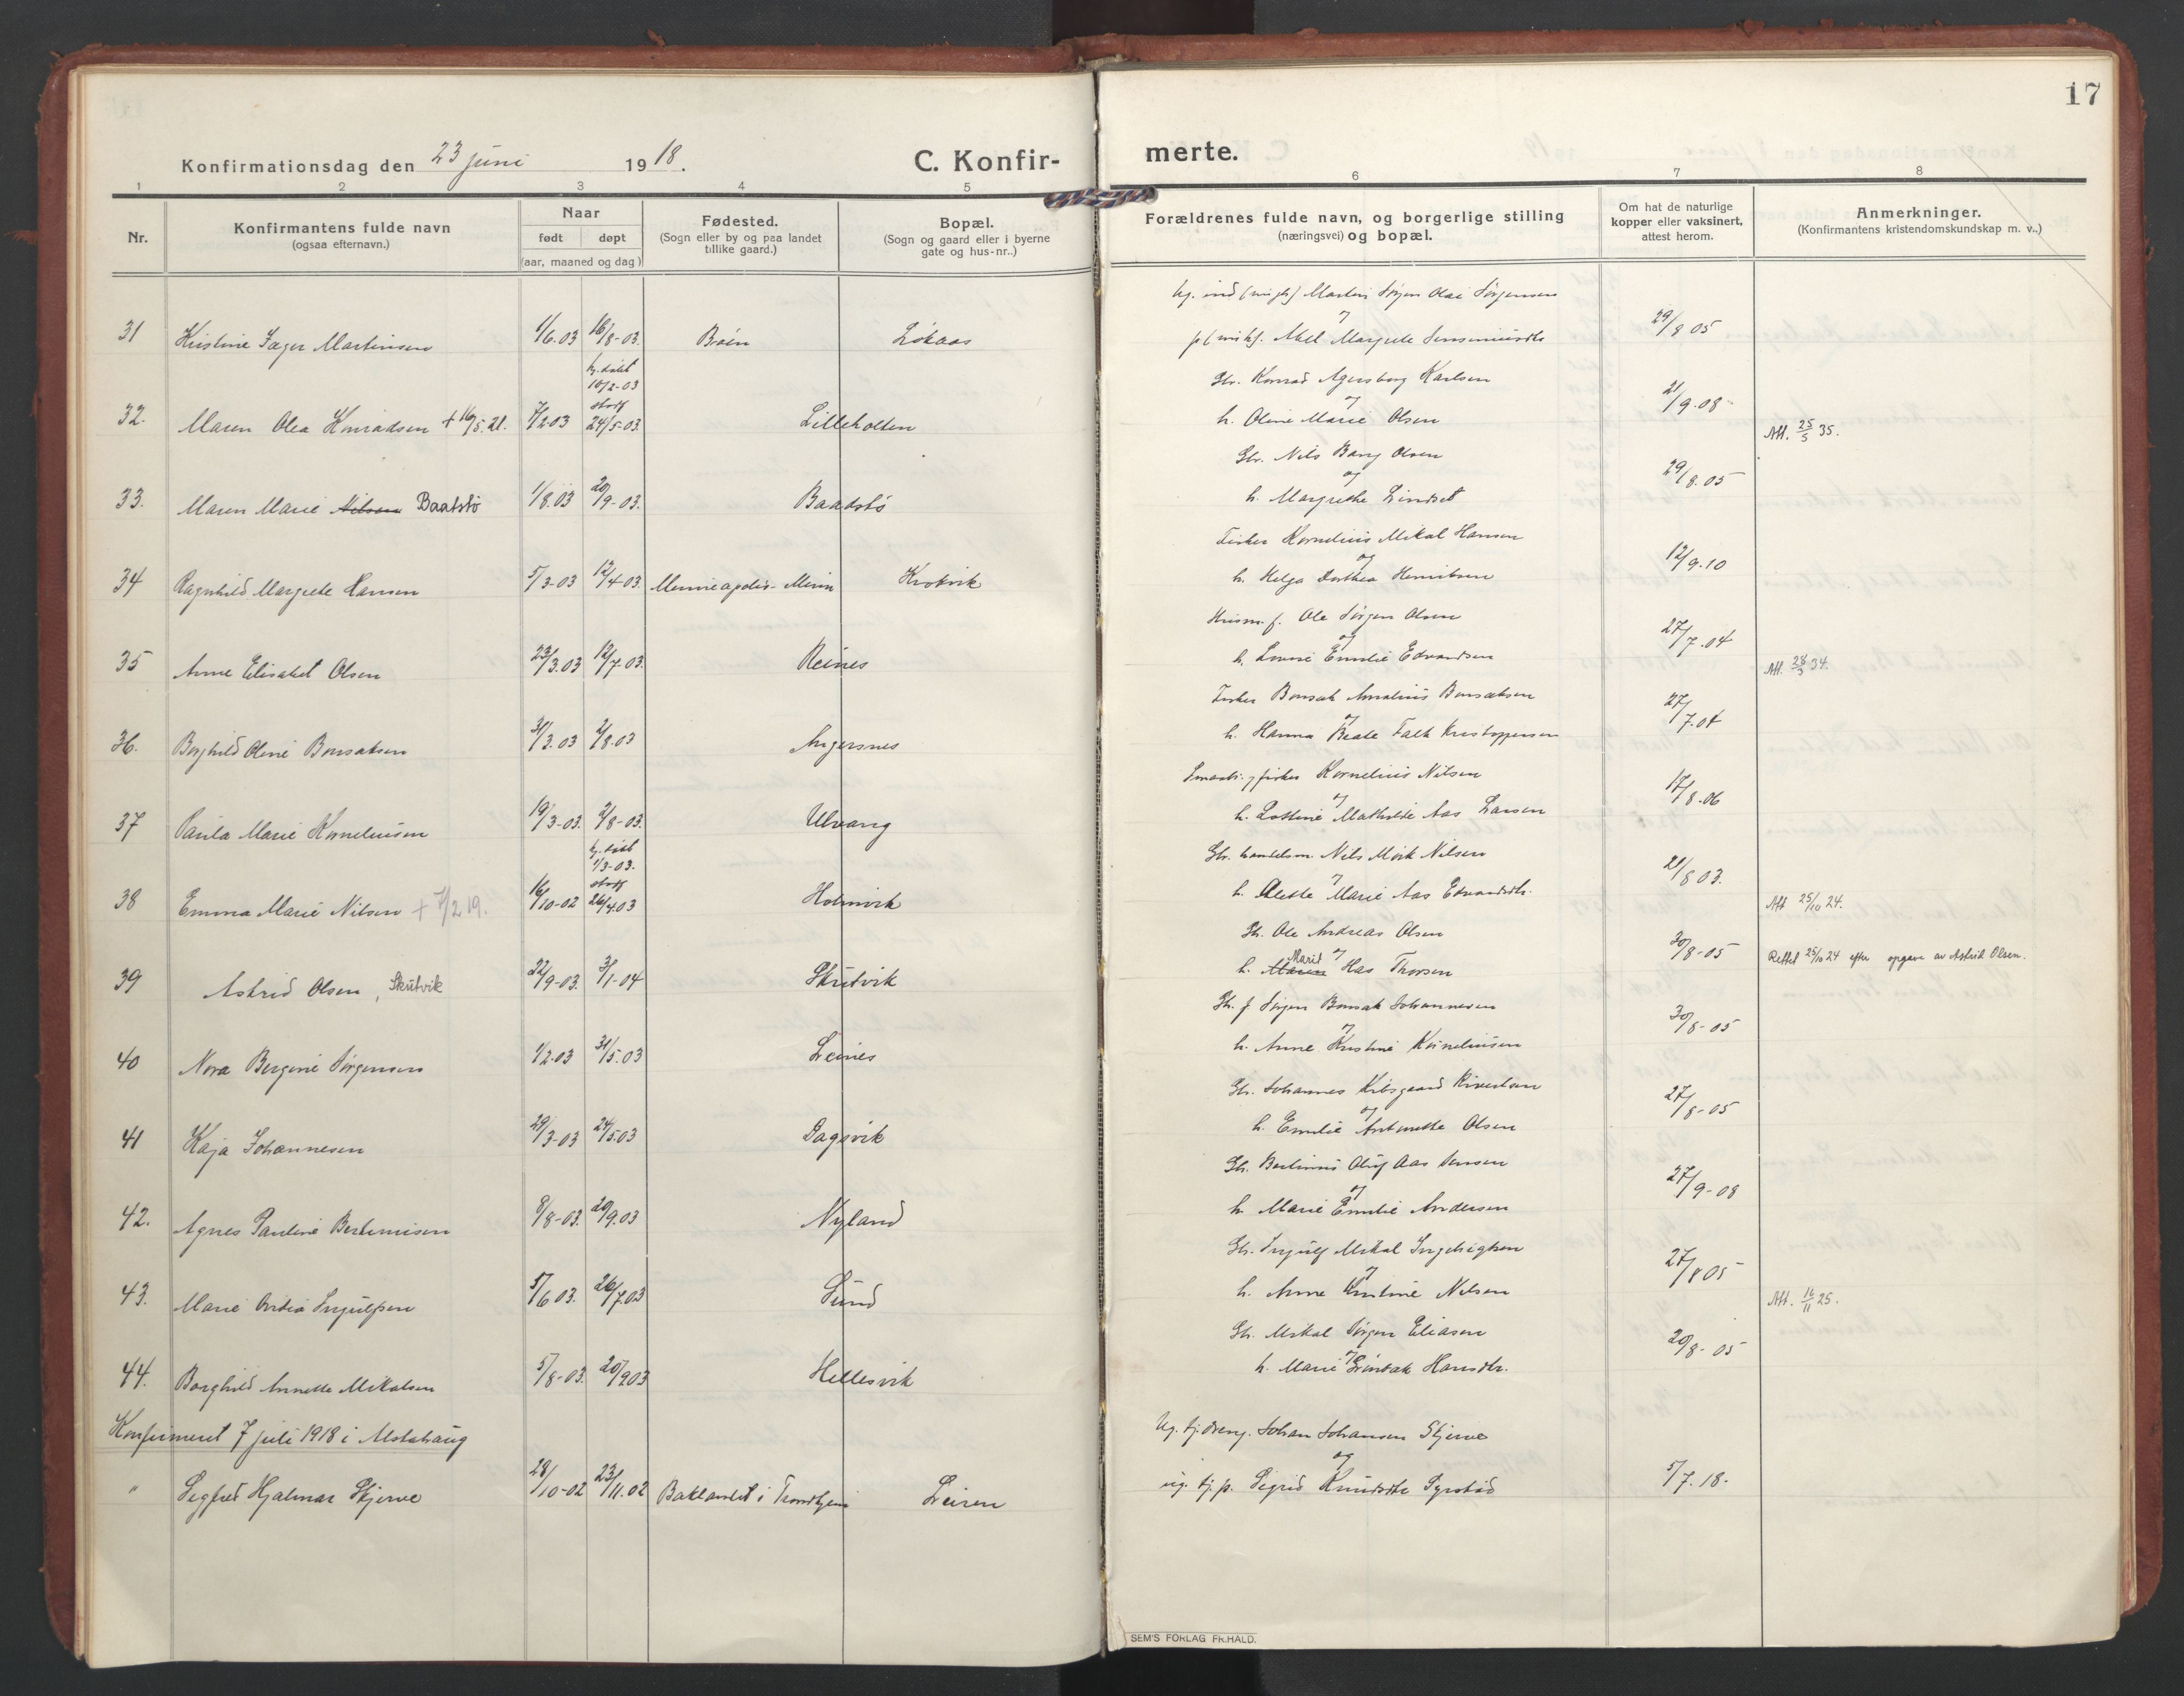 17
Konfirmationsdag den 23 juni 1918.
C. Konfirmerte.
1 2 3 4 5 6 7 8
Nr.
Konfirmantens fulde navn
(ogsaa efternavn.)
Naar
født døpt
(aar, maaned og dag)
Fødested.
(Sogn eller by og paa landet
tillike gaard.)
Bopæl.
(Sogn og gaard eller i byerne
gate og hus-nr..)
Forældrenes fulde navn, og borgerlige stilling
(næringsvei) og bopæl.
Om hat de naturlige
kopper eller vaksinert,
attest herom.
Anmerkninger.
(Konfirmantens kristendomskundskap m. v..)
Ug. ind Martin Jørgen Olai Jørgensen
31 Kristine Jæger Martinsen 1/6.03 16/8-03. Bøen Løkaas
Abel Margrete 29/8 05
hj. døbt
10/2-03
Gbr. Konrad Agersborg Karlsen
og
32. Maren Olea Konradsen + 16/5.21. 7/2.03 stadf 24/5-03. Lilleholten
h. Oline Marie Olsen 21/9.08 Att. 25/5 35.
Gbr. Nils Bang Olsen
og
33. Maren Marie Nilsen Baatstø 1/8.03 20/9-03. Baadstø
h. Margrethe Lindset 29/8.05
Fisker Kornelius Mikal Hansen
og
34 Ragnhild Margrete Hansen 5/3-03 12/4-03. Minneapolis-Minn Krokvik
h. Helga Dorthea Henriksen 12/9.10
Husm. f. Ole Jørgen Olsen
og
35 Anne Elisabet Olsen 23/3.03 12/7-03. Reines
h. Lovise Emilie Edvardsen 27/7.04 Att. 28/3 34.
Fisker Bonsak Amalius Bonsaksen
og
36. Borghild Oline Bonsaksen 31/3.03 2/8.03 Angersnes
h. Hanna Beate Falk Kristoffersen 27/7.04
Smaabr. og fisker Kornelius Nilsen
og
37 Paula Marie Korneliusen 19/3-03. 2/8-03. Ulvang
h. Mathilde Aas Larsen 17/8.06
hj. døbt
1/3-03.
Gbr. handelsm. Nils Mørk Nilsen
og
38 Emma Marie Nilsen + 7/2 19. 16/10-02 stadf 26/4.03 Holmvik
h. Alette Marie Aas Edvardsdtr. 21/8 03. Att 25/10 24.
Gb. Ole Andreas Olsen
og
39 Astrid Olsen, Skutvik 22/9-03. 3/1-04 Skutvik
h. Maren Marie Has Thorsen 30/8-05 Rettet 25/10 24 efter opgave av Astrid Olsen.
Gb. f. Jørgen Bonsak Johannesen
og
40 Nora Bergine Jørgensen 1/2.03 31/5.03 Leines
h. Anne Kristine Korneliusen 30/8-05
Gb. Johannes Kibsgaard
og
41 Kaja Johannesen 29/3-03 24/5.03 Dagsvik
h. Emilie Antonette Olsen 27/8-05
Gb. Berlinius Oluf Aas Jensen
og
42. Agnes Pauline Berliniusen 8/8-03. 20/9.03 Nyland
h. Marie Emilie Andersen 27/9-08
Gb. Ingulf Mikal Ingebrigtsen
og
43. Marie Ovidia Ingulfsen 5/6 03. 26/7.03 Sund
h. Anne Kristine Nilsen 27/8 05 Att. 16/11 25.
Gb. Mikal Jørgen Eliasen
og
44. Borghild Annette Mikalsen 5/8-03. 20/9 03 Hellesvik
h. Marie Hansdtr. 20/8-05
Konfirmeret 7 juli 1918 i Alstahaug
Ug. tj.dreng. Johan Johansen Skjerve
og
" Segfred Hjalmar Skjerve 28/10-02 23/11.02 Baklandet i Trondhjem Leiren
ug. tj. p. Sigrid Knudsdtr Syrstad 5/7.18.
SEM'S FORLAG FR.HALD.